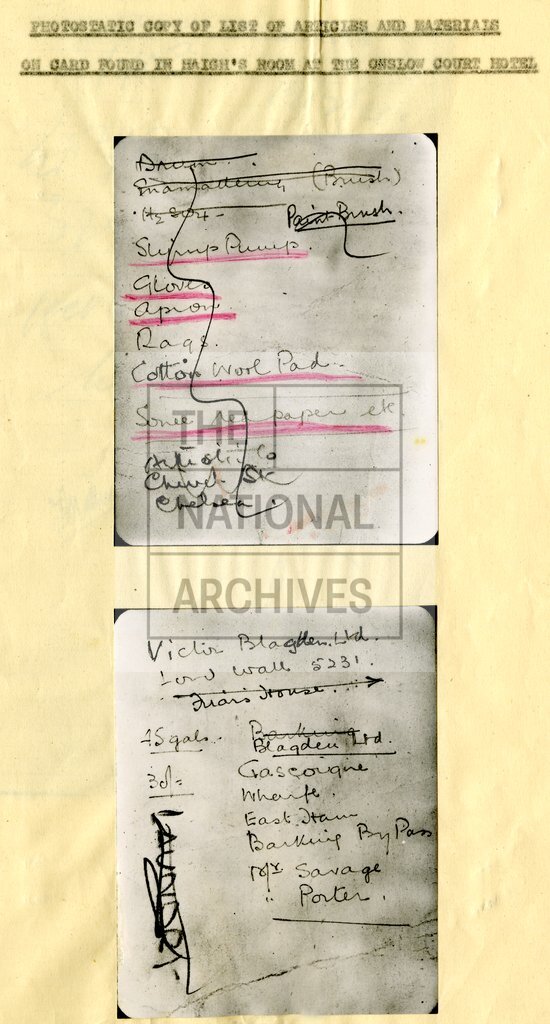 PHOTOSTATIC COPY OF LIST OF ARTICLES AND MATERIALS
ON CARD FOUND IN HAIGH'S ROOM AT THE ONSLOW COURT HOTEL
Drum
Enamelling (Brush)
H2SO4
Paint Brush.
Stirrup Pump.
Gloves
Apron
Rags.
Cotton Wool Pad.
Some paper etc.
THE
NATIONAL
ARCHIVES
Co
Chelsea.
Victor Blagden Ltd.
Wall 5231.
House
45 gals.
Barking
Blagden Ltd.
30/=
Gascoigne
Wharfe.
East Ham
Barking By Pass
Mr Savage
" Porter.
LAUNDRY